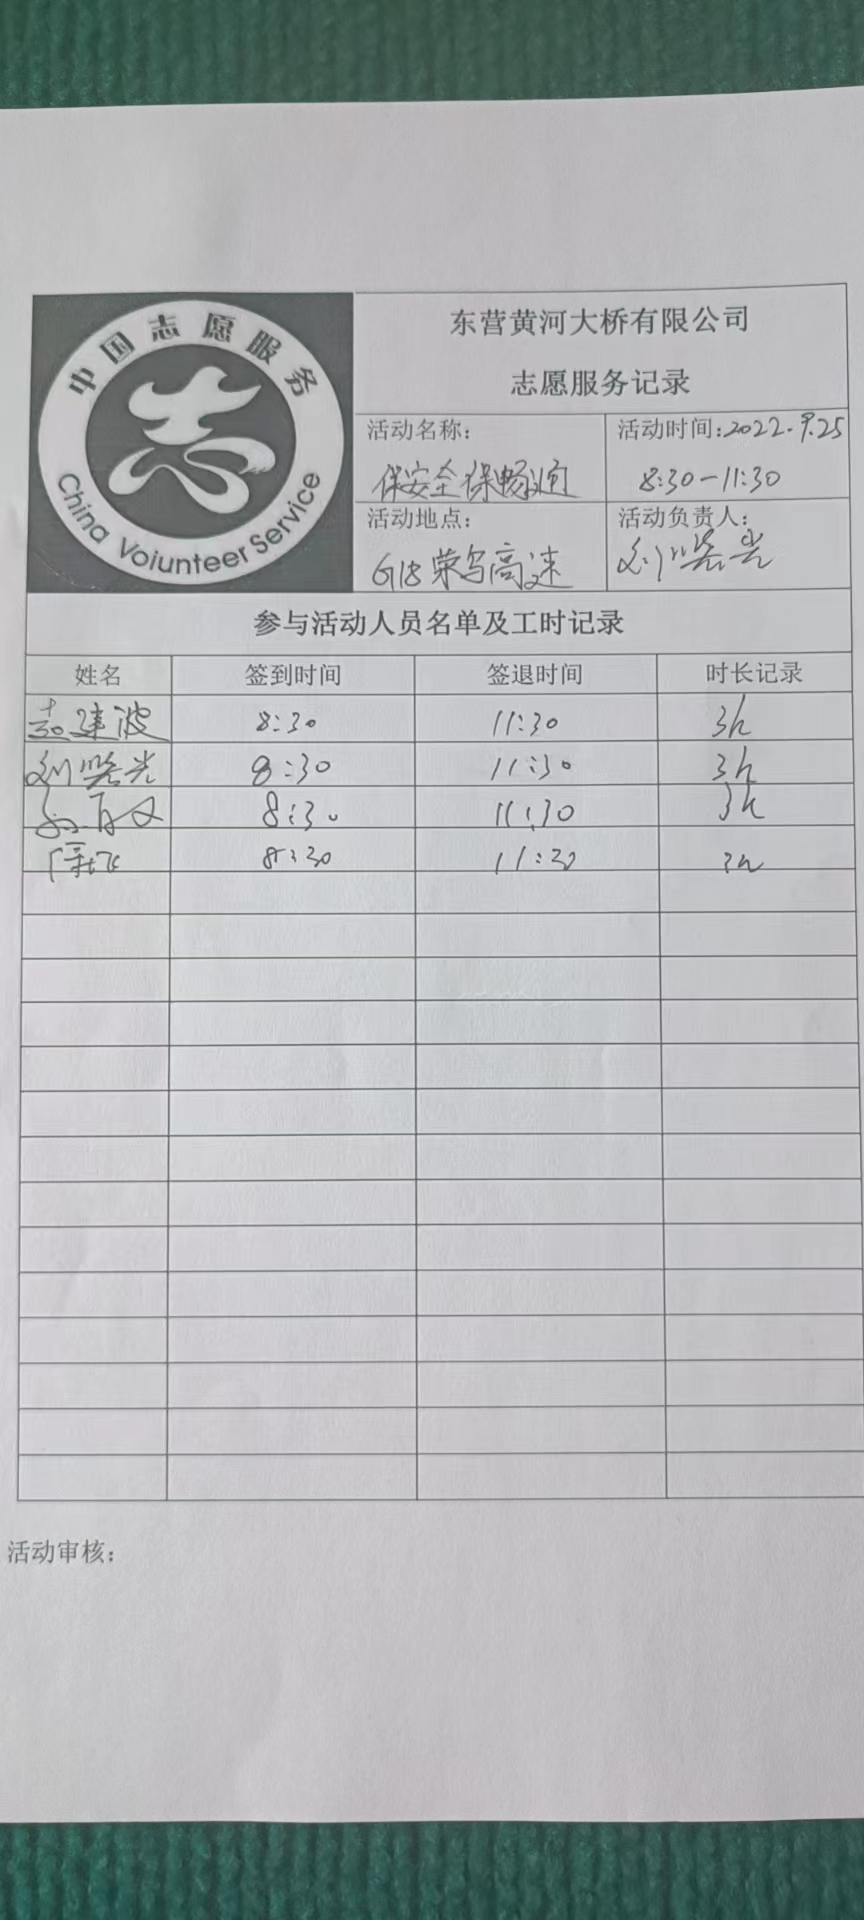 中国志愿服务
志
China Voiunteer Service
东营黄河大桥有限公司
志愿服务记录
活动名称：
保安全保畅通
活动时间：2022.9.25
8:30-11:30
活动地点：
G18荣乌高速
活动负责人：
刘 光
参与活动人员名单及工时记录
姓名 签到时间 签退时间 时长记录
建波 8:30 11:30 3h
刘 光 8:30 11:30 3h
8:30 11:30 3h
8:30 11:30 3h
活动审核：